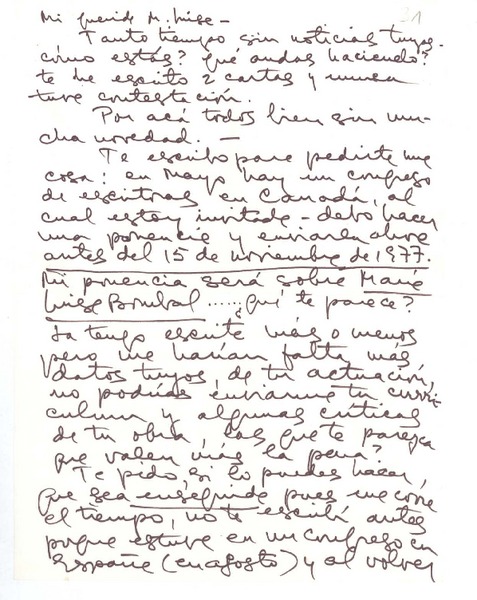 21
Mi querida M. Luisa –
Tanto tiempo sin noticias tuyas.
cómo estás? qué andas haciendo?
te he escrito 2 cartas y nunca
tuve contestación.
Por acá todos bien sin mu-
cha novedad. —
Te escribo para pedirte una
cosa: en Mayo hay un congreso
de escritoras en Canadá, al
cual estoy invitada – debo hacer
una ponencia y enviarla ahora
antes del 15 de noviembre de 1977.
Mi ponencia será sobre María
Luisa Bombal ...... ¿Qué te parece?
La tengo escrita más o menos
pero me harían falta más
datos tuyos, de tu actuación,
no podrías enviarme tu curri-
culum y algunas críticas
de tu obra, las que te parezca
que valen más la pena?
Te pido, si lo puedes hacer,
que sea enseguida pues me corre
el tiempo, no te escribí antes
porque estuve en un congreso en
España (en agosto) y al volver